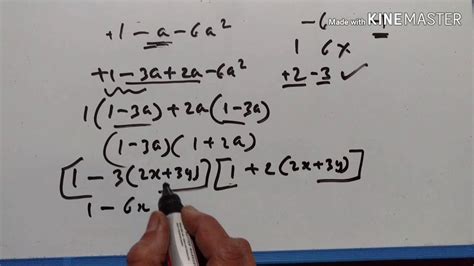 +1 - a - 6a²
+1 - 3a + 2a - 6a²
1(1 - 3a) + 2a(1 - 3a)
(1 - 3a)(1 + 2a)
[1 - 3(2x + 3y)] [1 + 2(2x + 3y)]
1 - 6x
-6
1 6x
+2 - 3 ✓
Made with KINEMASTER